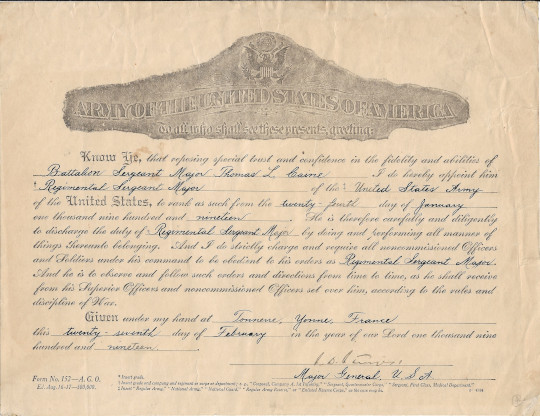 ARMY OF THE UNITED STATES OF AMERICA
To all who shall see these presents, greeting:
Know Ye, that reposing special trust and confidence in the fidelity and abilities of
Battalion Sergeant Major Thomas L. I do hereby appoint him
Regimental Sergeant Major of the United States Army
of the United States, to rank as such from the twenty-fourth day of January
one thousand nine hundred and nineteen. He is therefore carefully and diligently
to discharge the duty of Regimental Sergeant Major by doing and performing all manner of
things thereunto belonging. And I do strictly charge and require all noncommissioned Officers
and Soldiers under his command to be obedient to his orders as Regimental Sergeant Major.
And he is to observe and follow such orders and directions from time to time, as he shall receive
from his Superior Officers and noncommissioned Officers set over him, according to the rules and
discipline of War.
Given under my hand at Tonnerre, Yonne, France
this twenty-seventh day of February in the year of our Lord one thousand nine
hundred and nineteen.
Major General, U.S.A
Form No. 152—A. G. O.